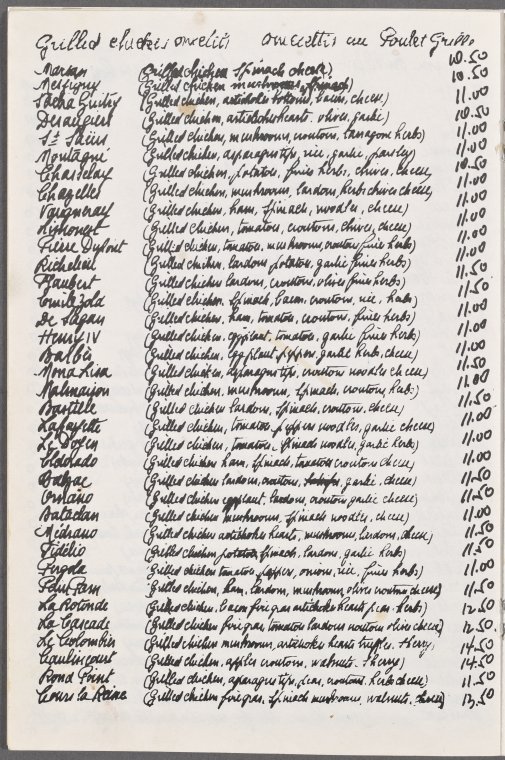 Grilled chicken omelets omelettes au Poulet Grille
Marian (Grilled chicken Spinach cheese) 10.50
(Grilled chicken mushrooms, spinach) 10.50
Sacha Guitry (Grilled chicken, artichoke bottoms, bacon, cheese) 11.00
Desaugiers (Grilled chicken, artichoke hearts, olives, garlic) 10.50
St Saëns (Grilled chicken, mushrooms, croutons, tarragon herbs) 11.00
Montagne (Grilled chicken, asparagus tips, rice, garlic, parsley) 11.00
Chasselay (Grilled chicken, potatoes, fines herbs, chives, cheese 10.50
Chazelles (Grilled chicken, mushrooms, lardons, herbs chives cheese, 11.00
Vaigneray (Grilled chicken, ham, spinach, noodles, cheese) 11.00
Limonest (Grilled chicken, tomatoes, croutons, chives, cheese) 11.00
Pierre Dupont (Grilled chicken, tomatoes, mushrooms, croutons fines herbs) 11.00
Richelieu (Grilled chicken, lardons, potatoes, garlic fines herbs) 11.00
Flaubert (Grilled chicken lardons, croutons, olives fines herbs) 11.50
Emile Zola (Grilled chicken, spinach, bacon, croutons, rice, herbs) 11.50
De Sagan (Grilled chicken, ham, tomatoes, croutons, fines herbs) 11.00
Henry IV (Grilled chicken, eggplant, tomatoes, garlic fines herbs) 11.00
Balbes (Grilled chicken, eggplant peppers, garlic herbs, cheese) 11.00
Mona Lisa (Grilled chicken, asparagus tips, croutons noodles cheese) 11.50
Malmaison (Grilled chicken, mushrooms, spinach, croutons, herbs) 11.00
Bastille (Grilled chicken lardons, spinach, croutons, cheese) 11.50
Lafayette (Grilled chicken, tomatoes peppers noodles, garlic cheese) 11.00
Le Doyen (Grilled chicken, tomatoes, spinach noodles, garlic herbs) 11.00
Eldorado (Grilled chicken ham, spinach, tomatoes croutons cheese) 11.00
Balzac (Grilled chicken lardons, croutons, garlic, cheese) 11.50
Ornano (Grilled chicken eggplant, lardons, croutons garlic cheese) 11.50
Bataclan (Grilled chicken mushrooms, spinach noodles, cheese) 11.00
Médrano (Grilled chicken artichokes hearts, mushrooms, lardons, cheese) 11.50
Fidélio (Grilled chicken potatoes, spinach, lardons, garlic herbs) 11.50
(Grilled chicken tomatoes, peppers, onions, rice, fines herbs) 11.00
(Grilled chicken, ham, lardons, mushrooms, olives croutons cheese) 11.50
La Rotonde (Grilled chicken, bacon foie gras artichoke hearts peas herbs) 12.50
La Cascade (Grilled chicken foie gras, tomatoes lardons croutons olives cheese) 12.50.
Le Colombier (Grilled chicken mushrooms, artichokes hearts truffles, sherry, 14.50
Caulincourt (Grilled chicken, apples croutons, walnuts, sherry) 14.50
Rond Point (Grilled chicken, asparagus tips, peas, croutons, herbs cheese) 11.50
Cours la Reine (Grilled chicken foie gras, spinach mushrooms, walnuts, cheese) 13.50